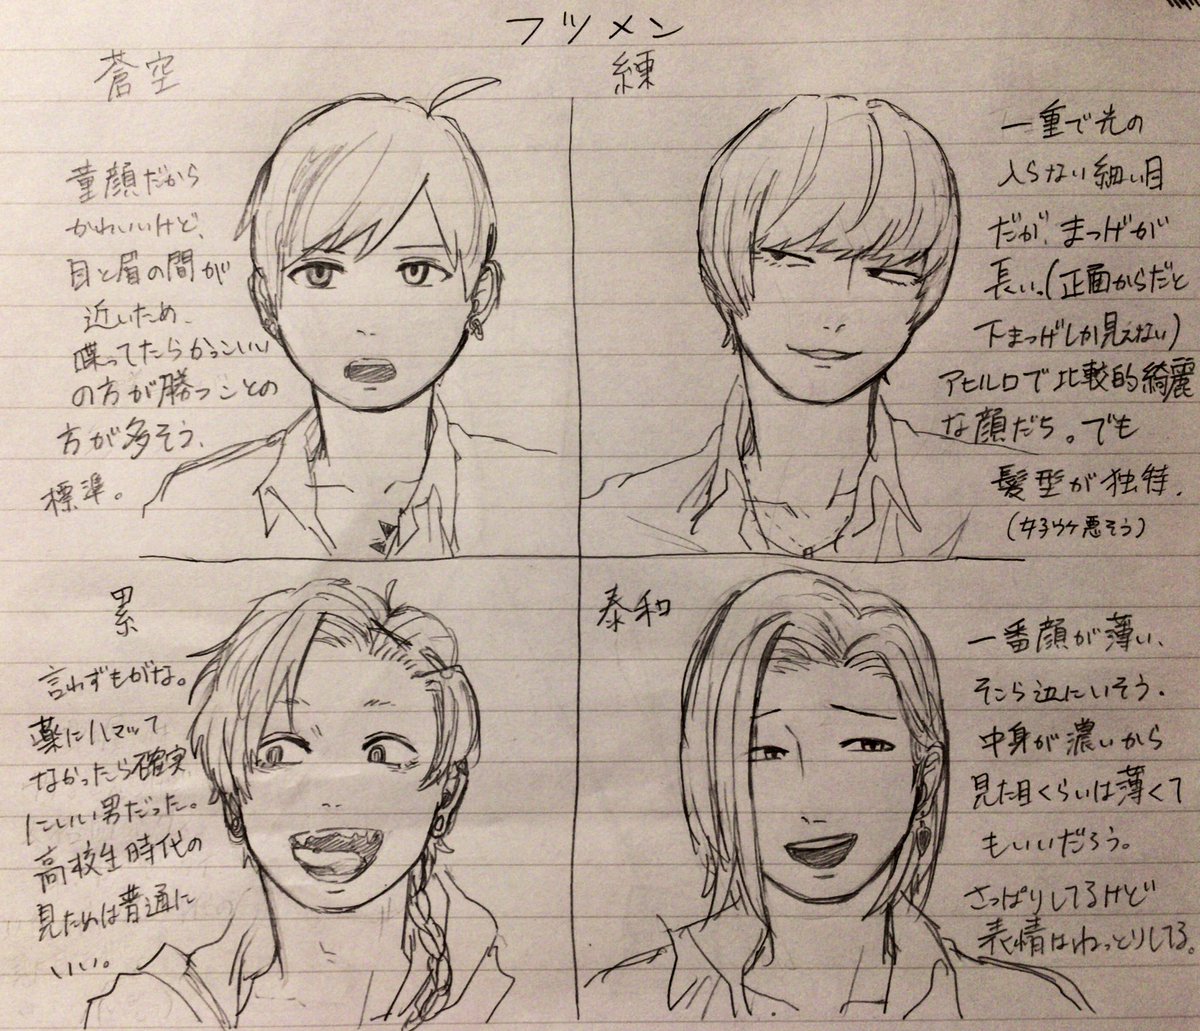 フツメン
蒼空
童顔だから
かわいいけど、
目と眉の間が
近いため、
喋ってたらかっこいい
の方が勝つことの
方が多そう、
標準。
練
一重で光の
入らない細い目
だが、まつげが
長い。(正面からだと
下まつげしか見えない)
アヒル口で比較的綺麗
な顔だち。でも
髪型が独特.
(女子ウケ悪そう)
累
言わずもがな。
薬にハマッて
なかったら確実
にいい男だった。
高校生時代の
見ためは普通に
いい。
泰和
一番顔が薄い、
そこら辺にいそう.
中身が濃いから
見た目くらいは薄くて
もいいだろう。
さっぱりしてるけど
表情はねっとりしてる。